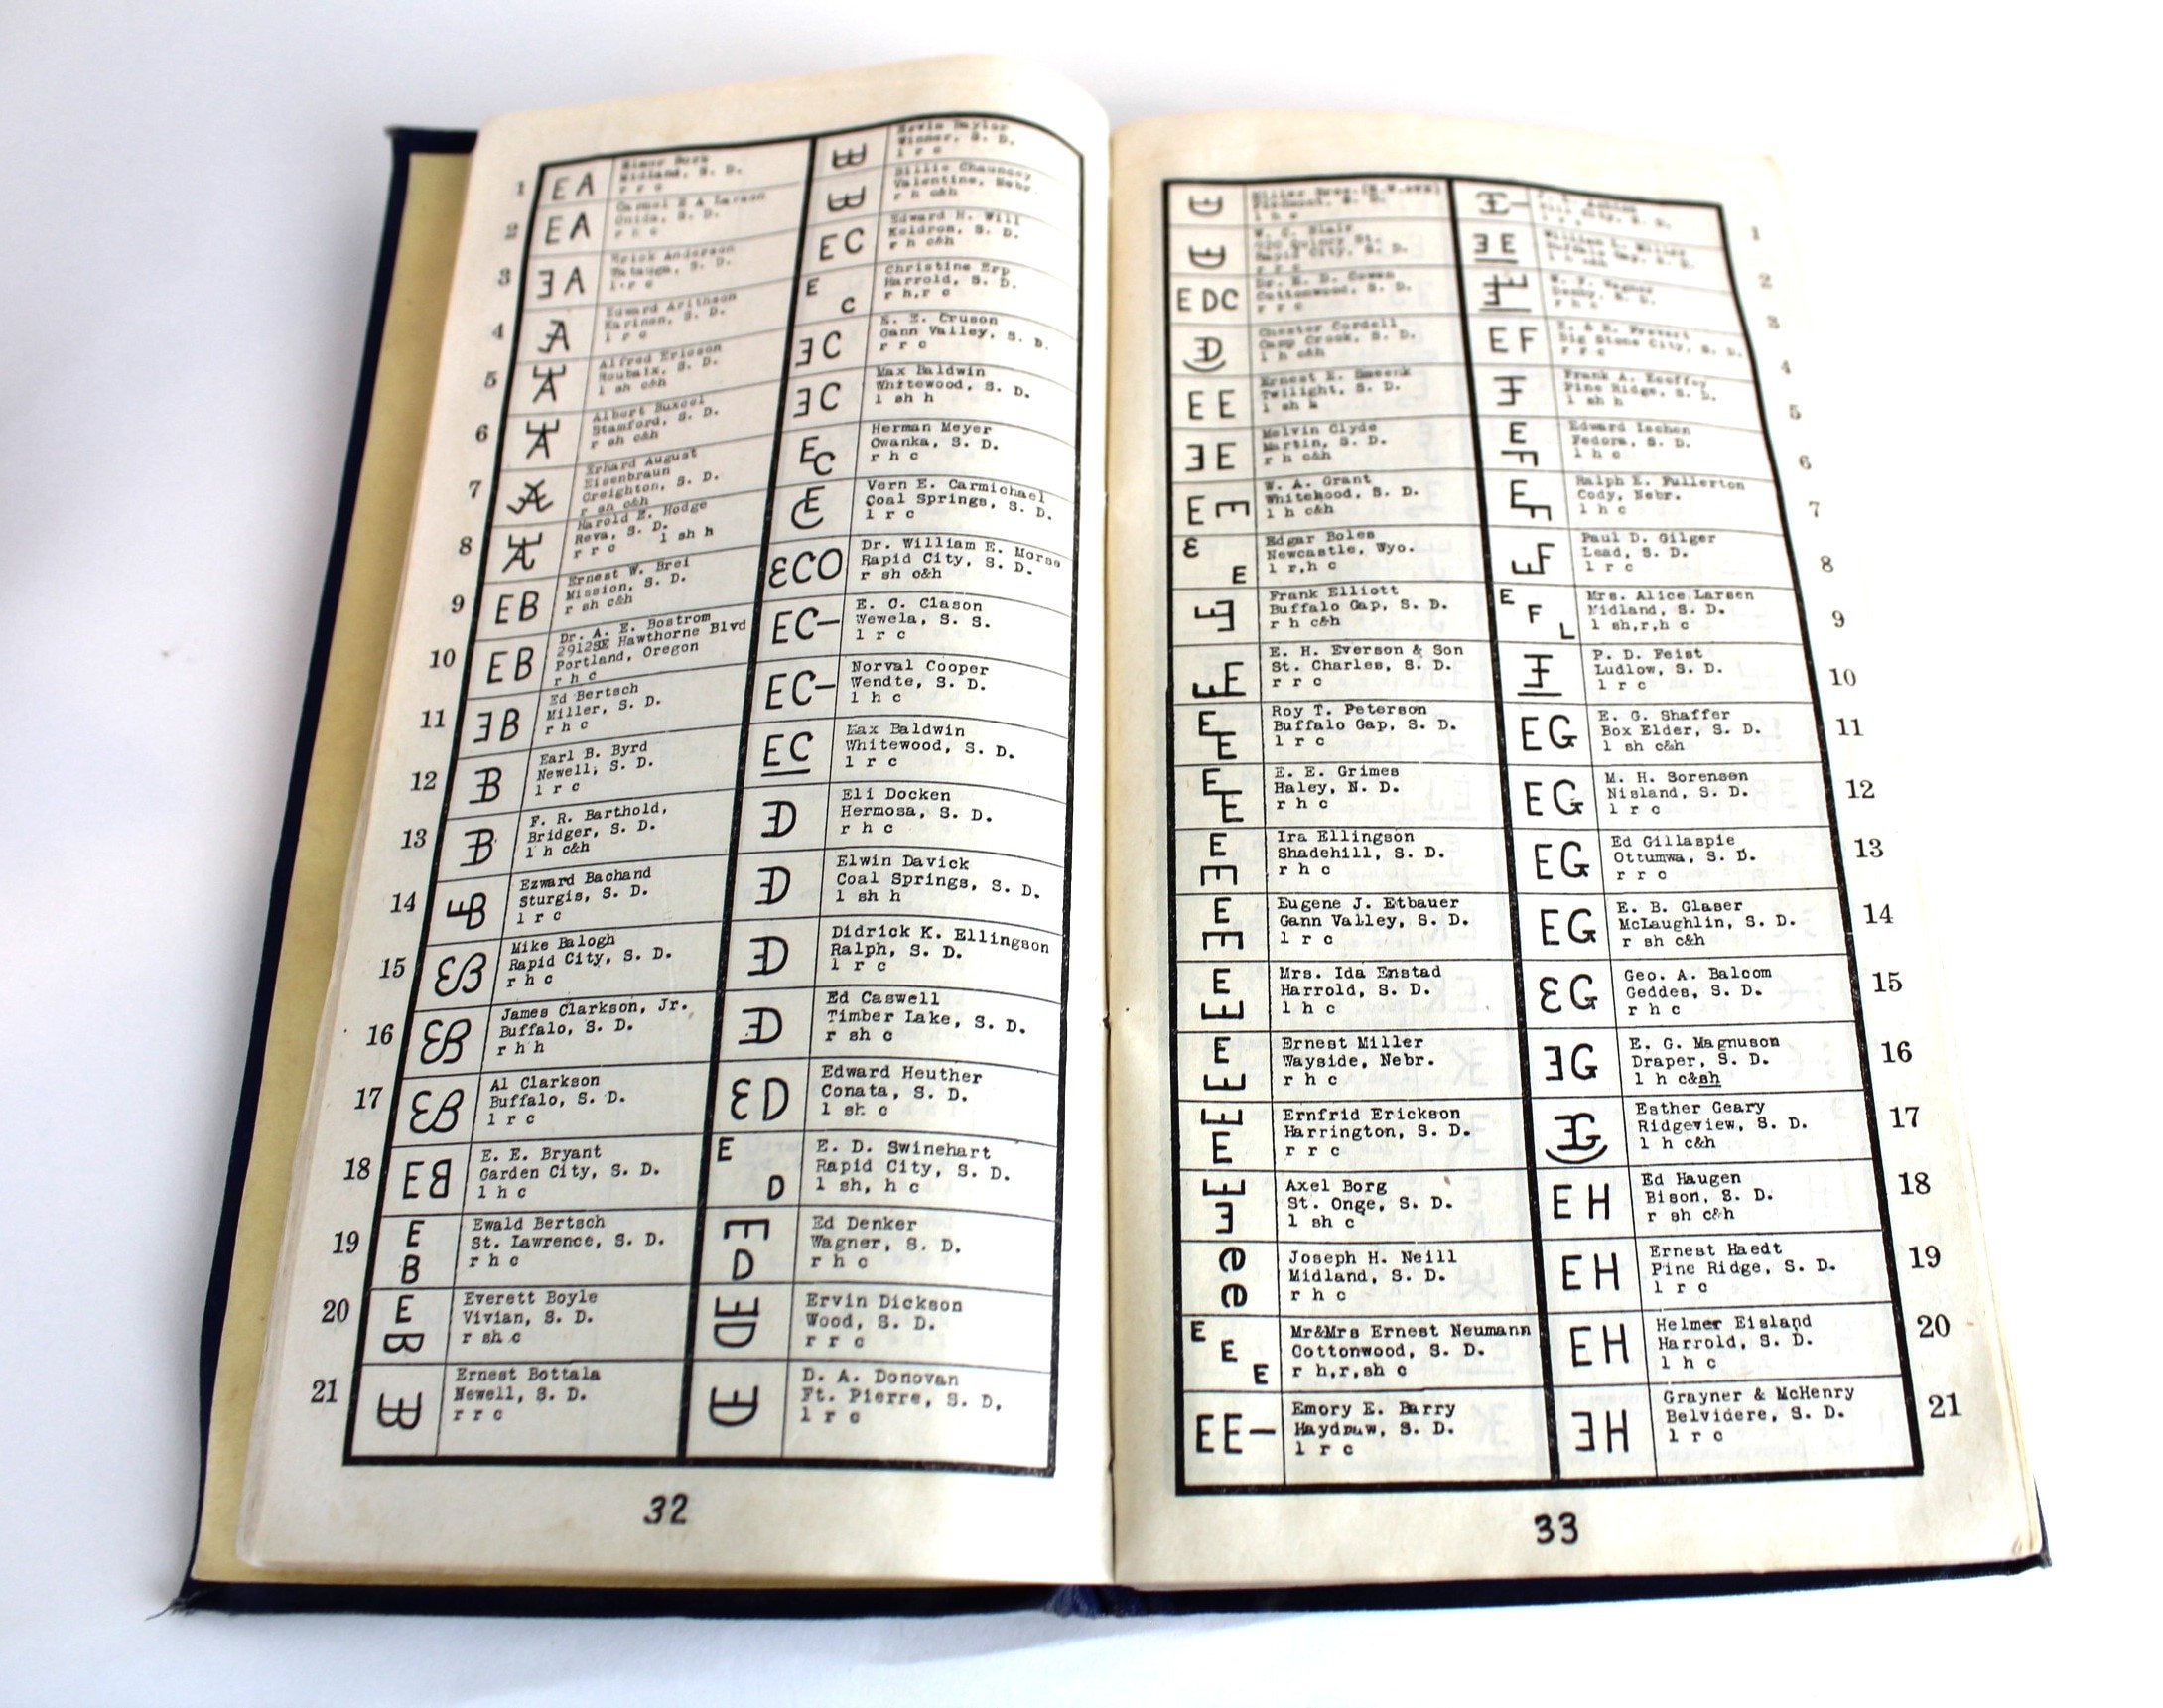 1
EA
Midland, S. D.
r r c
2
EA
Carmel E A Larson
Onida, S. D.
r r c
3
ƎA
Erick Anderson
Watauga, S. D.
l r c
4
Edward Arithson
Karinen, S. D.
l r c
5
Alfred Ericson
Roubaix, S. D.
l sh c&h
6
Albert Buxcel
Stamford, S. D.
r sh c&h
7
Erhard August
Eisenbraun
Creighton, S. D.
r sh c&h
8
Harold E. Hodge
Reva, S. D.
r r c l sh h
9
EB
Ernest W. Brei
Mission, S. D.
r sh c&h
10
EB
Dr. A. E. Bostrom
2912SE Hawthorne Blvd
Portland, Oregon
r h c
11
ƎB
Ed Bertsch
Miller, S. D.
r h c
12
Earl B. Byrd
Newell, S. D.
l r c
13
F. R. Barthold,
Bridger, S. D.
l h c&h
14
Ezward Bachand
Sturgis, S. D.
l r c
15
Mike Balogh
Rapid City, S. D.
r h c
16
James Clarkson, Jr.
Buffalo, S. D.
r h h
17
Al Clarkson
Buffalo, S. D.
l r c
18
E. E. Bryant
Garden City, S. D.
l h c
19
E
B
Ewald Bertsch
St. Lawrence, S. D.
r h c
20
E
Everett Boyle
Vivian, S. D.
r sh c
21
Ernest Bottala
Newell, S. D.
r r c
Winner, S. D.
l r c
Billie Chauncey
Valentine, Nebr.
r h c&h
EC
Edward H. Will
Keldron, S. D.
r h c&h
E
C
Christine Erp
Harrold, S. D.
r h,r c
ƎC
E. E. Cruson
Gann Valley, S. D.
r r c
ƎC
Max Baldwin
Whitewood, S. D.
l sh h
EC
Herman Meyer
Owanka, S. D.
r h c
Vern E. Carmichael
Coal Springs, S. D.
l r c
ƐCO
Dr. William E. Morse
Rapid City, S. D.
r sh c&h
EC-
E. C. Clason
Wewela, S. S.
l r c
EC-
Norval Cooper
Wendte, S. D.
l h c
EC
Max Baldwin
Whitewood, S. D.
l r c
Eli Docken
Hermosa, S. D.
r h c
Elwin Davick
Coal Springs, S. D.
l sh h
Didrick K. Ellingson
Ralph, S. D.
l r c
Ed Caswell
Timber Lake, S. D.
r sh c
ƐD
Edward Heuther
Conata, S. D.
l sh c
E
D
E. D. Swinehart
Rapid City, S. D.
l sh, h c
D
Ed Denker
Wagner, S. D.
r h c
Ervin Dickson
Wood, S. D.
r r c
D. A. Donovan
Ft. Pierre, S. D,
l r c
32
Piedmont, S. D.
l h c
W. C. Blair
920 Quincy St.
Rapid City, S. D.
r r c
EDC
Dr. E. D. Cowan
Cottonwood, S. D.
r r c
Chester Cordell
Camp Crook, S. D.
l h c&h
EE
Ernest E. Smeenk
Twilight, S. D.
l sh h
ƎE
Melvin Clyde
Martin, S. D.
r h c&h
E
W. A. Grant
Whitehood, S. D.
l h c&h
Ɛ
E
Edgar Boles
Newcastle, Wyo.
l r,h c
Frank Elliott
Buffalo Gap, S. D.
r h c&h
E. H. Everson & Son
St. Charles, S. D.
r r c
E
E
Roy T. Peterson
Buffalo Gap, S. D.
l r c
E
E
E. E. Grimes
Haley, N. D.
r h c
E
Ira Ellingson
Shadehill, S. D.
r h c
E
Eugene J. Etbauer
Gann Valley, S. D.
l r c
E
Mrs. Ida Enstad
Harrold, S. D.
l h c
E
Ernest Miller
Wayside, Nebr.
r h c
E
Ernfrid Erickson
Harrington, S. D.
r r c
Ǝ
Axel Borg
St. Onge, S. D.
l sh c
e
Joseph H. Neill
Midland, S. D.
r h c
E
E
E
Mr&Mrs Ernest Neumann
Cottonwood, S. D.
r h,r,sh c
EE-
Emory E. Barry
S. D.
l r c
Hill City, S. D.
1
ƎE
Buffalo Gap, S. D.
l h c&h
2
W. F. Wagner
Denby, S. D.
r h c
3
EF
E. & R. Prevert
Big Stone City, S. D.
r r c
4
Frank A. Ecoffey
Pine Ridge, S. D.
l sh h
5
E
Edward Ischen
Fedora, S. D.
l h c
6
E
Ralph E. Fullerton
Cody, Nebr.
l h c
7
F
Paul D. Gilger
Lead, S. D.
l r c
8
E
F
L
Mrs. Alice Larsen
Midland, S. D.
l sh,r,h c
9
P. D. Feist
Ludlow, S. D.
l r c
10
EG
E. G. Shaffer
Box Elder, S. D.
l sh c&h
11
EG
M. H. Sorensen
Nisland, S. D.
l r c
12
EG
Ed Gillaspie
Ottumwa, S. D.
r r c
13
EG
E. B. Glaser
McLaughlin, S. D.
r sh c&h
14
ƐG
Geo. A. Balcom
Geddes, S. D.
r h c
15
ƎG
E. G. Magnuson
Draper, S. D.
l h c&sh
16
Esther Geary
Ridgeview, S. D.
l h c&h
17
EH
Ed Haugen
Bison, S. D.
r sh c&h
18
EH
Ernest Haedt
Pine Ridge, S. D.
l r c
19
EH
Helmer Eisland
Harrold, S. D.
l h c
20
ƎH
Grayner & McHenry
Belvidere, S. D.
l r c
21
33